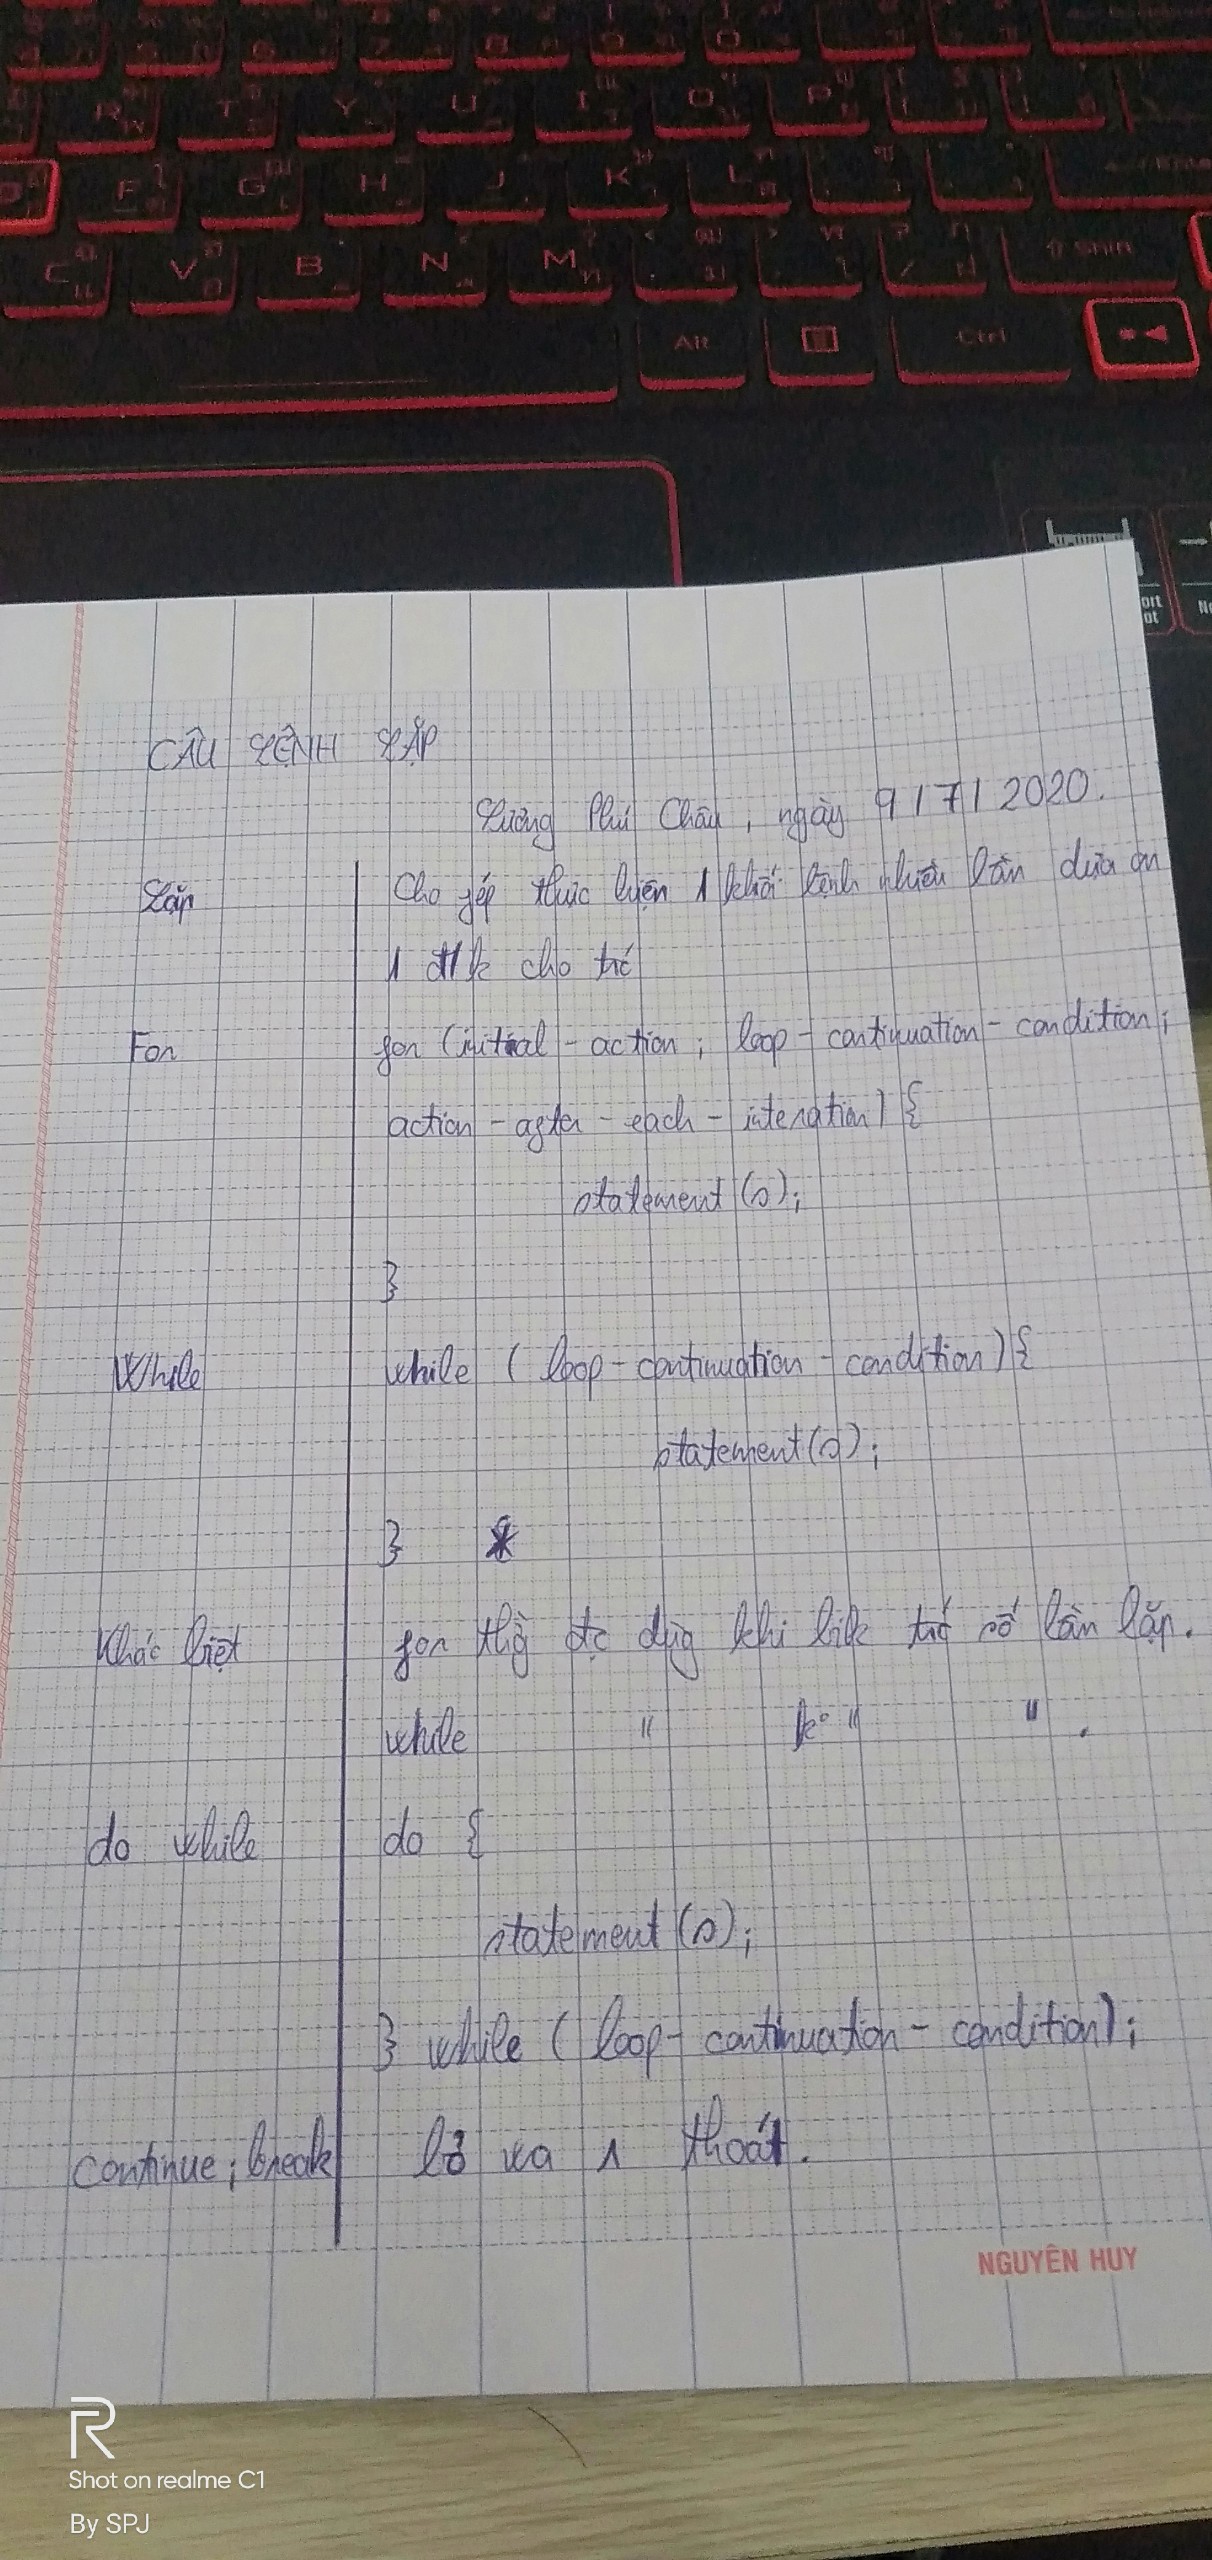 R T Y U I O P
F G H J K L
C V B N M
Shift
Alt
Ctrl
CÂU LỆNH LẶP
Lương Phú Châu, ngày 9/7/2020.
Lặp
Cho fép thực hiện 1 khối lệnh nhiều lần dựa on
1 đ/k cho trc
For
for (initial - action; loop - continuation - condition;
action - after - each - interation) {
statement(s);
}
While
while (loop - continuation - condition) {
statement(s);
}
Khác biệt
for thg đc dùg khi bik trc số lần lặp.
while " k° " " .
do while
do {
statement(s);
} while (loop - continuation - condition);
continue; break
thoát.
NGUYÊN HUY
R
Shot on realme C1
By SPJ